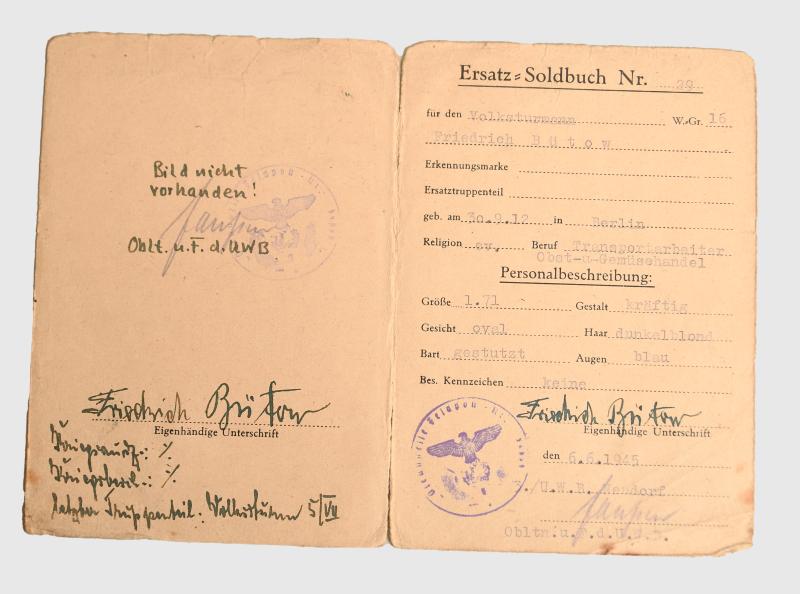 Bild nicht
vorhanden!
Oblt. u. F. d. UWB
Friedrich Bütow
Eigenhändige Unterschrift
letzter Truppenteil: Volkssturm 5/VII
Ersatz=Soldbuch Nr. 29
für den Volksturmann W.-Gr. 16
Friedrich Bütow
Erkennungsmarke
Ersatztruppenteil
geb. am 30.9.12 in Berlin
Religion ev. Beruf Transportarbeiter
Obst-u-Gemüsehandel
Personalbeschreibung:
Größe 1.71 Gestalt kräftig
Gesicht oval Haar dunkelblond
Bart gestutzt Augen blau
Bes. Kennzeichen keine
Friedrich Bütow
Eigenhändige Unterschrift
den 6.6.1945
Dienststelle Feldpost-Nr.
/U.W.B.
Obltn.u.F.d.U.W.B.